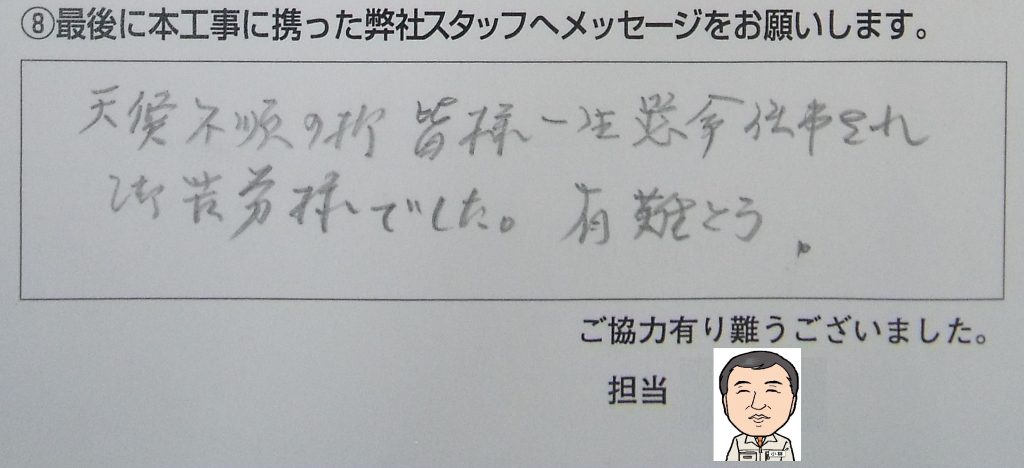 ⑧最後に本工事に携った弊社スタッフへメッセージをお願いします。
天候不順の折 皆様一生懸命仕事され
御苦労様でした。有難とう.
ご協力有り難うございました。
担当